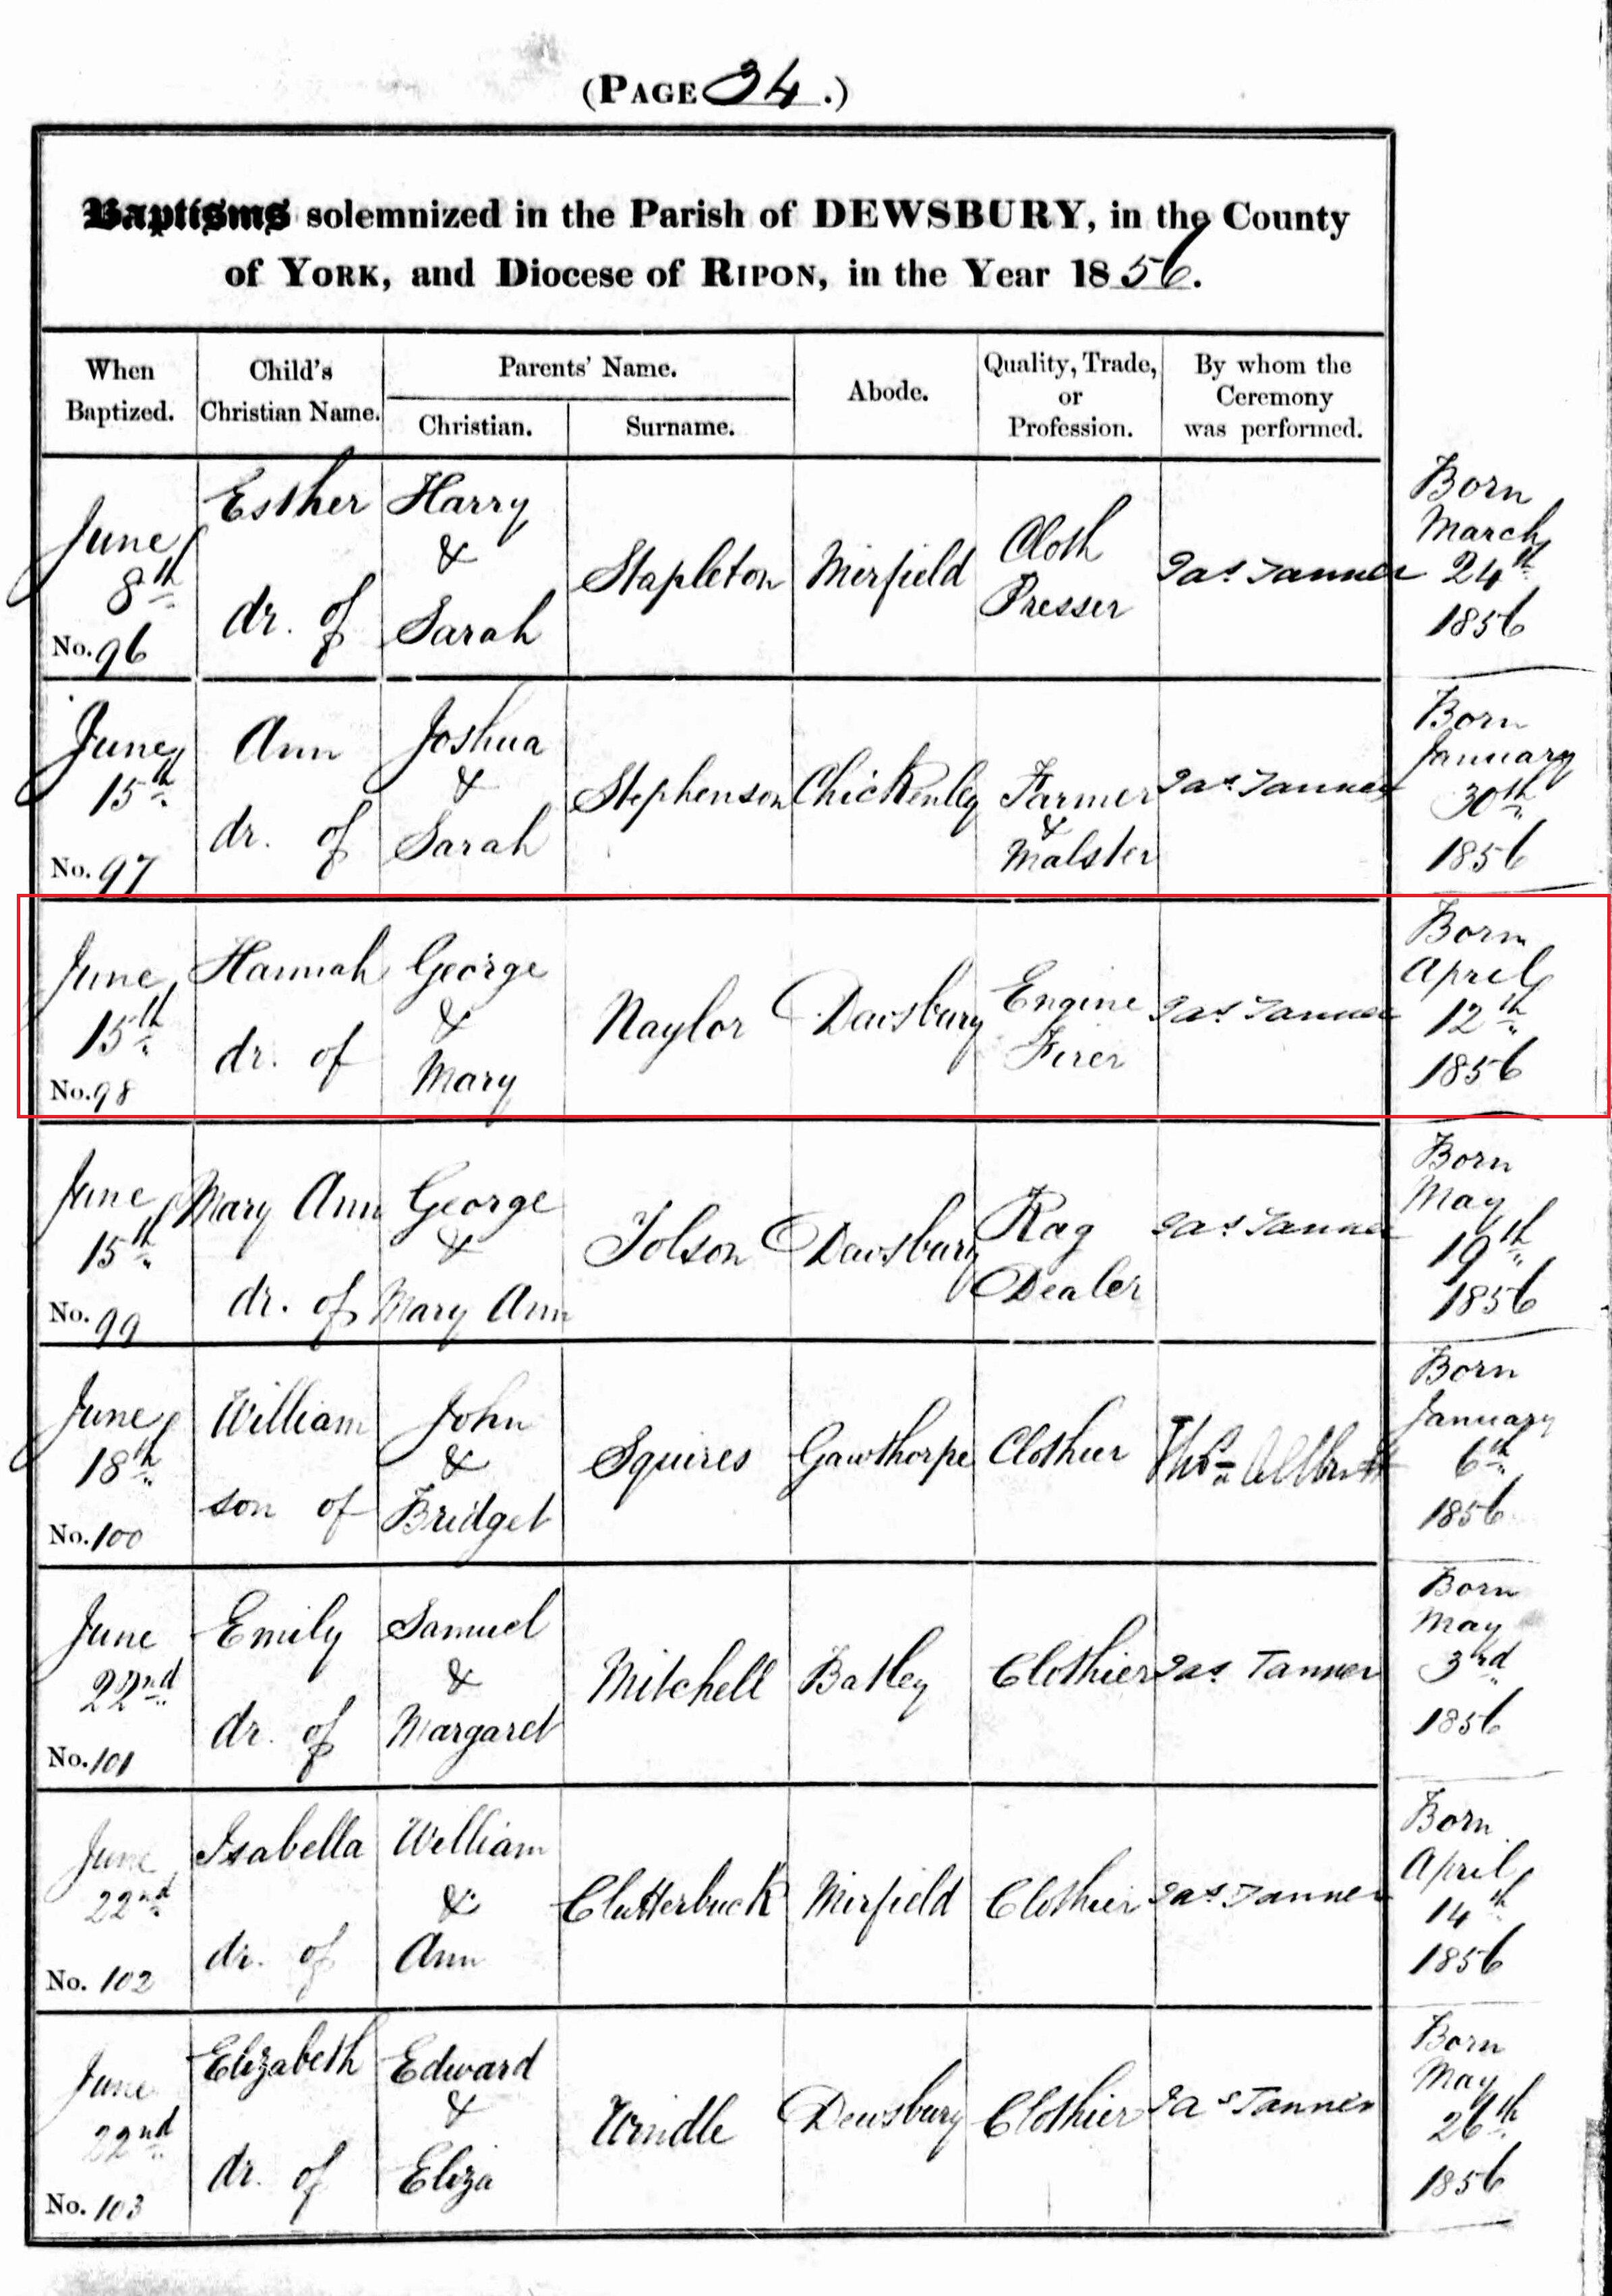 (PAGE 34.)
Baptisms solemnized in the Parish of DEWSBURY, in the County
of YORK, and Diocese of RIPON, in the Year 1856.
When Baptized.
Child's Christian Name.
Parents' Name.
Christian.
Surname.
Abode.
Quality, Trade, or Profession.
By whom the Ceremony was performed.
June 8th
No. 96
Esther
dr. of
Harry
&
Sarah
Stapleton
Mirfield
Cloth
Presser
Jas. Tanner
Born
March
24th
1856
June 15th
No. 97
Ann
dr. of
Joshua
&
Sarah
Stephenson
Chickenley
Farmer
&
Malster
Jas. Tanner
Born
January
30th
1856
June 15th
No. 98
Hannah
dr. of
George
&
Mary
Naylor
Dewsbury
Engine
Firer
Jas. Tanner
Born
April
12th
1856
June 15th
No. 99
Mary Ann
dr. of
George
&
Mary Ann
Tolson
Dewsbury
Rag
Dealer
Jas. Tanner
Born
May
19th
1856
June 18th
No. 100
William
son of
John
&
Bridget
Squires
Gawthorpe
Clothier
Thos. Allbutt
Born
January
6th
1856
June 22nd
No. 101
Emily
dr. of
Samuel
&
Margaret
Mitchell
Batley
Clothier
Jas. Tanner
Born
May
3rd
1856
June 22nd
No. 102
Isabella
dr. of
William
&
Ann
Clutterbuck
Mirfield
Clothier
Jas. Tanner
Born
April
14th
1856
June 22nd
No. 103
Elizabeth
dr. of
Edward
&
Eliza
Windle
Dewsbury
Clothier
Jas. Tanner
Born
May
26th
1856